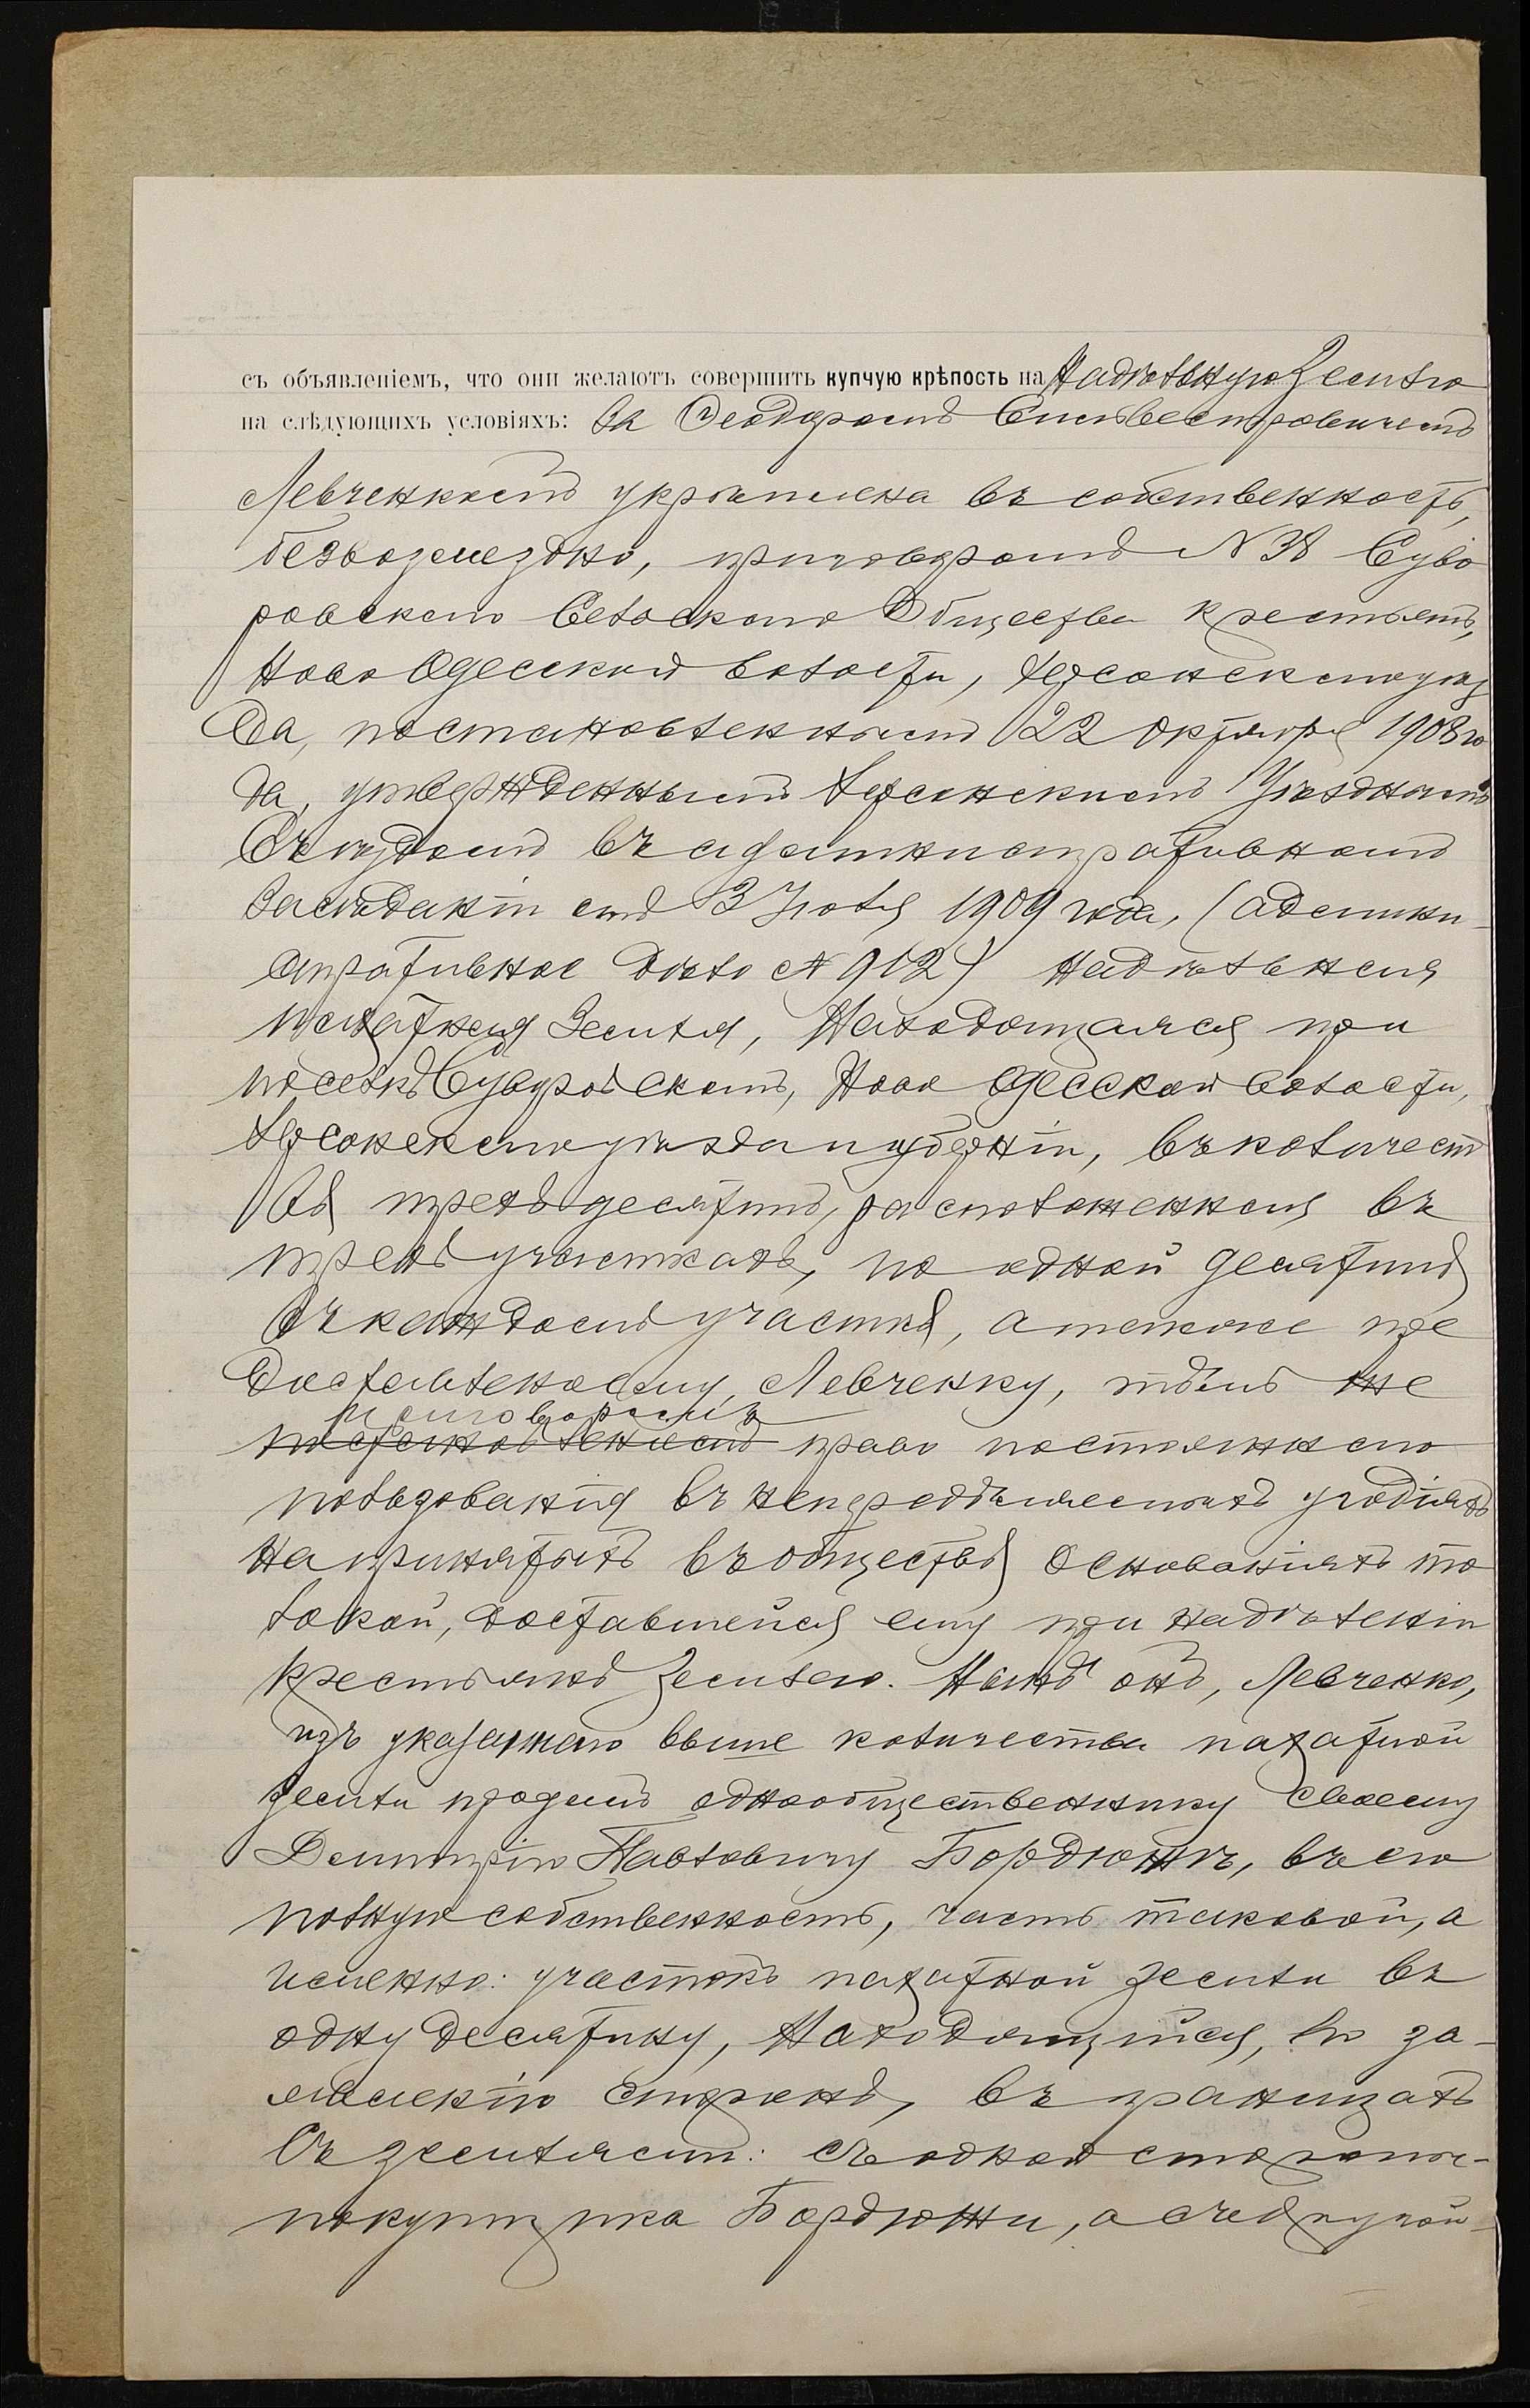 съ объявленіемъ, что они желаютъ совершить купчую крѣпость на Надѣльную Землю
на слѣдующихъ условіяхъ: За Ѳеодоромъ Сильвестровичемъ
Левченкомъ укрѣплена въ собственность,
безвозмездно, приговоромъ N 38 Суво
ровскаго Сельскаго Общества крестьянъ,
Ново Одесской волости, Херсонскаго уѣз
да, постановленнымъ 22 Октября 1908 го
да, утвержденнымъ Херсонскимъ Уѣзднымъ
Съѣздомъ въ административномъ
Засѣданіи отъ 3 Іюля 1909 года, (админи-
стративное дѣло № 912) надѣльная
пахатная Земля, Находящаяся при
поселкѣ Суворовскомъ, Ново Одесской волости,
Херсонскаго уѣзда и губерніи, въ количест
вѣ трехъ десятинъ, расположенная въ
трехъ участкахъ, по одной десятинѣ
въ каждомъ участкѣ, а также пре
доставлено ему, Левченку, тѣмъ же
приговоромъ
постановленіемъ право постояннаго
пользованія въ неопредѣленныхъ угодіяхъ
на принятыхъ въ обществѣ Основаніяхъ то
локой, доставшейся ему при надѣленіи
Крестьянъ Землею. Нынѣ онъ, Левченко,
изъ указаннаго выше количества пахатной
земли продалъ однообщественнику своему
Димитрію Павловичу Бордюжѣ, въ его
полную собственность, часть таковой, а
именно: участокъ пахатной земли въ
одну десятину, Находящійся, по за-
явленію сторонъ, въ границахъ
съ землями: съ одной стороны-
покупщика Бордюжи, а съ другой-